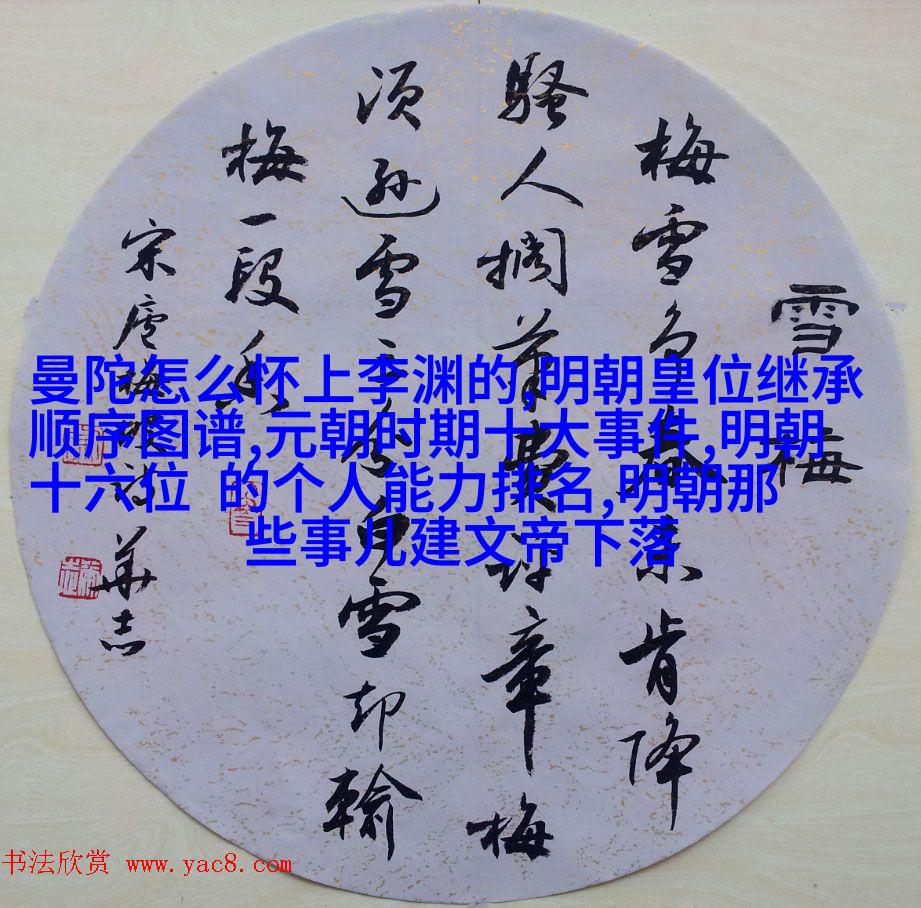 雪梅
梅雪争春未肯降
骚人搁笔费评章梅
须逊雪三分白雪却输
梅一段香
宋卢梅坡诗 华志
曼陀怎么怀上李渊的,明朝皇位继承
顺序图谱,元朝时期十大事件,明朝
十六位 的个人能力排名,明朝那
些事儿建文帝下落
书法欣赏 www.yac8.com